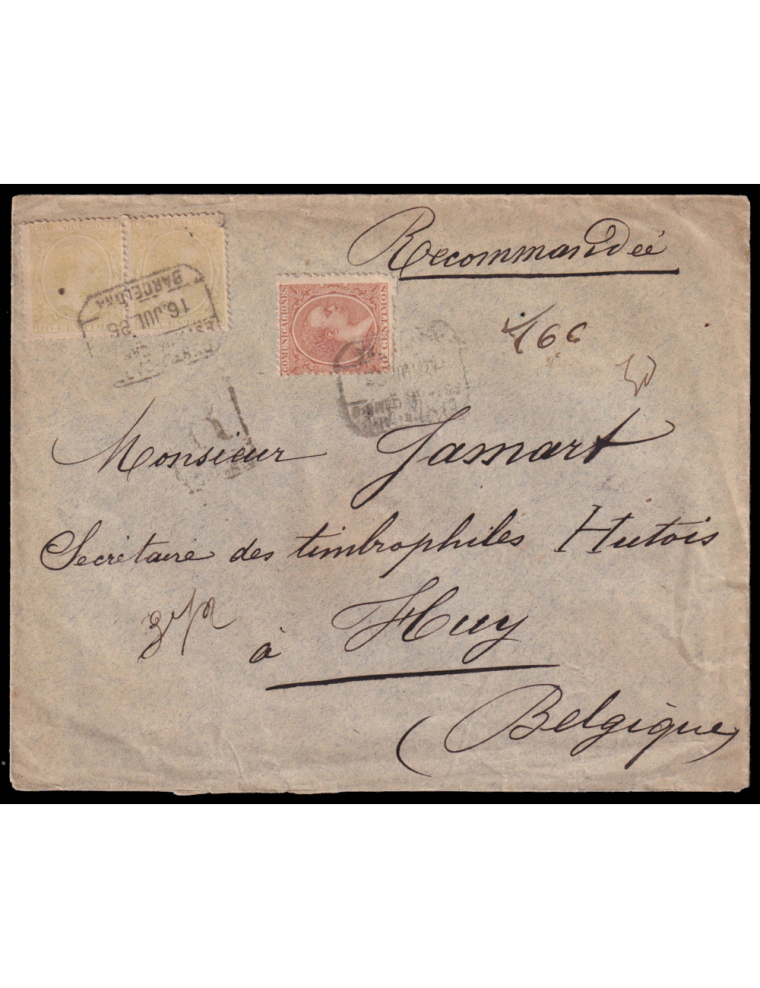 Recommandée
COMUNICACIONES
10 CENTIMOS
BARCELONA
16 JUL 96
166
R
Monsieur Jamart
Secrétaire des timbrophiles Hutois
à Huy
(Belgique)